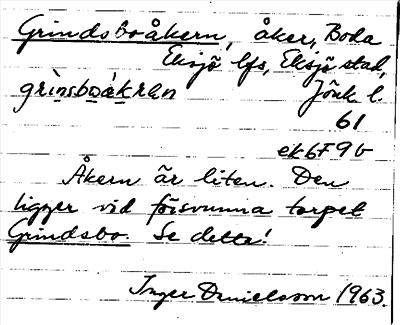 Grindsboåkern, åker, Boda
Eksjö lfs, Eksjö stad,
grìnsboåkran Jönk. l.
61
ek 6F 9b
Åkern är liten. Den
ligger vid försvunna torpet
Grindsbo. Se detta!
Inger Danielsson 1963.